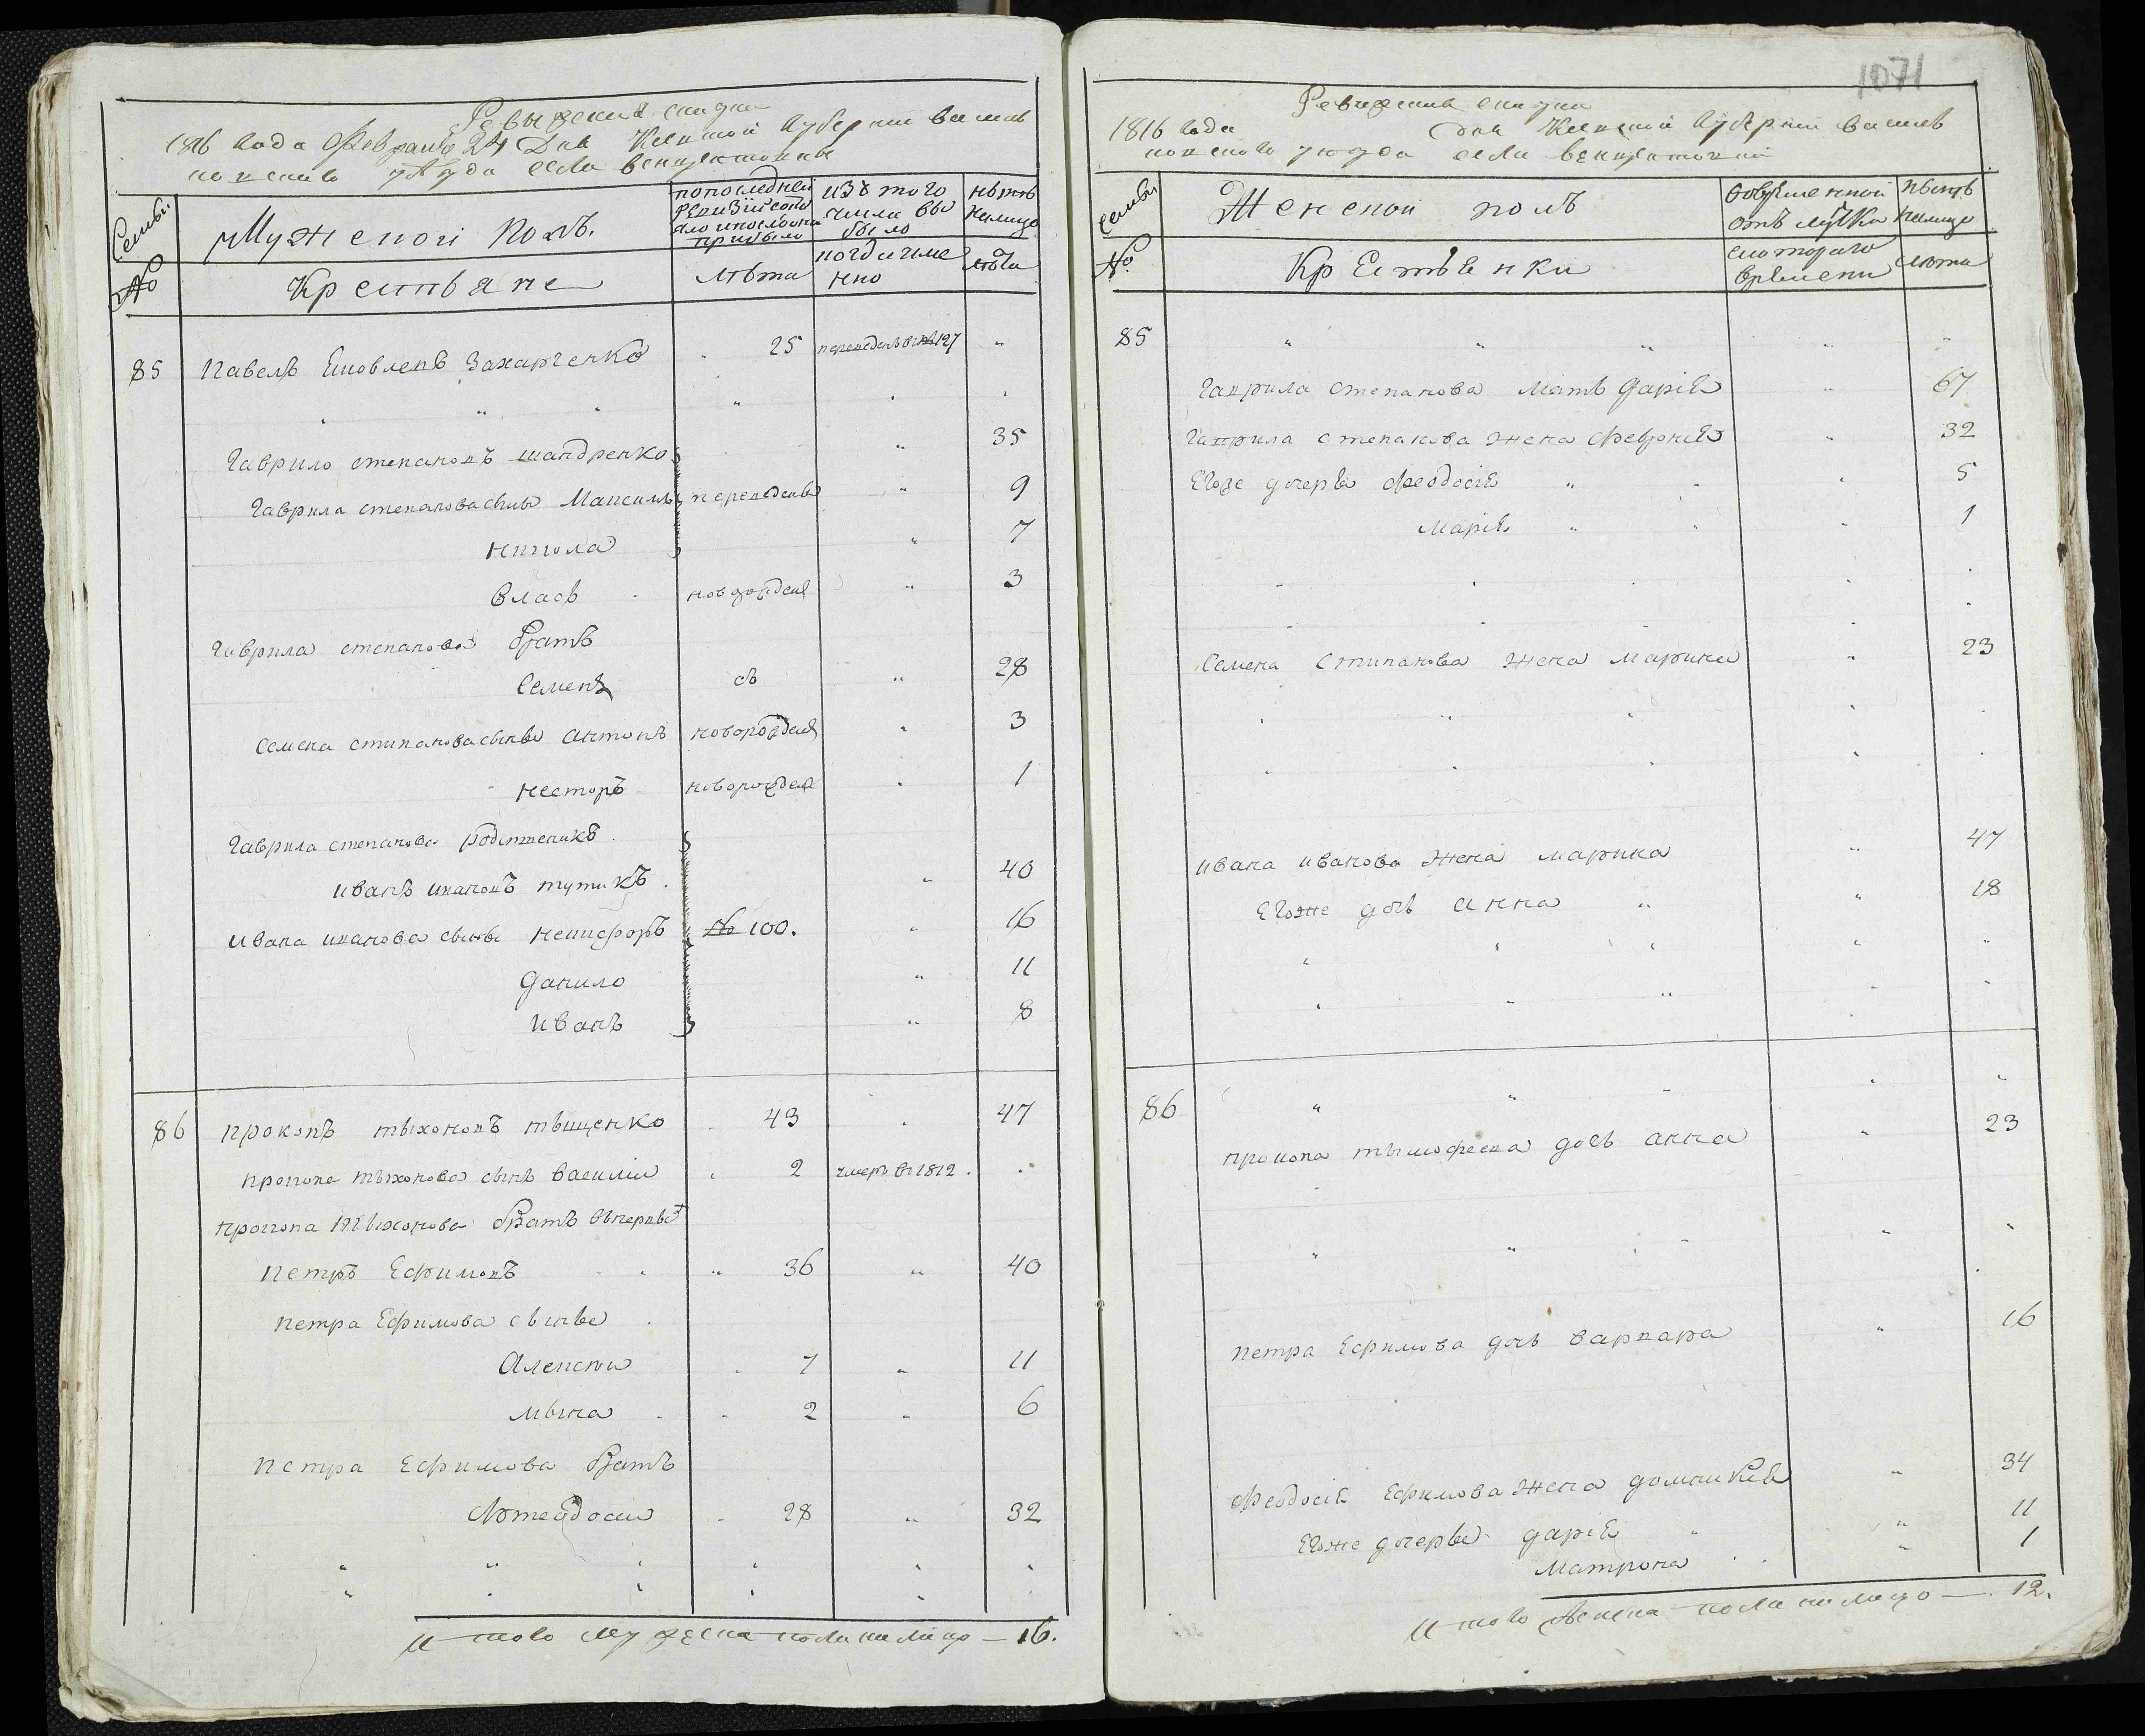 Ревыжская скаска
1816 Года Февраля 24 Дня Киевской Губернии Василь
ковского уезда села
Семьи
№
Мужеской полъ.
Крестьяне
по последней ревизии состояло и после оной прибыло
лѣта
изъ того числа выбыло
когда имено
нынѣ налицо
лѣта
85 Павелъ Яковлевъ Захарченко 25 переведенъ в № 127
Гаврило степановъ шандренко 35
Гаврила степанова сыны Максимъ переведены 9
никола 7
власъ новорожденъ 3
Гаврила степанова братъ
Семенъ 28
Семена стипанова сыны антонъ новорожденъ 3
несторъ новорожденъ 1
Гаврила степанова родственикъ
иванъ ивановъ тутикъ 40
ивана иванова сыны никифоръ № 100. 16
данило 11
иванъ 8
86 прокопъ тыхоновъ тыщенко 43 47
прокопа тыхонова сынъ василии 2 умеръ в 1812.
прокопа тыхонова братъ
петръ Ефимовъ 36 40
петра Ефимова сыны
алексѣи 7 11
мына 2 6
петра Ефимова братъ
28 32
Итого мужеска пола налицо — 16.
1071
Ревижская скаска
1816 Года дня Киевской Губернии Василь
ковского уезда села
Семьи
№
Женской полъ
Крестьянки
во временной отлучки
с которого времени
нынѣ налицо
лѣта
85
Гаврила степанова мать даріѣ 67
Гаврила степанова жена февроніѣ 32
Егоже дочеры феодосіѣ 5
маріѣ 1
Семена Стипанова жена марина 23
ивана иванова жена марина 47
Егоже дочь анна 18
86
прокопа тымофеева дочь анна 23
петра Ефимова дочь варвара 16
феодосіѣ Ефимова жена домникіѣ 34
Егоже дочеры даріѣ 11
матрона 1
Итого женска пола налицо — 12.